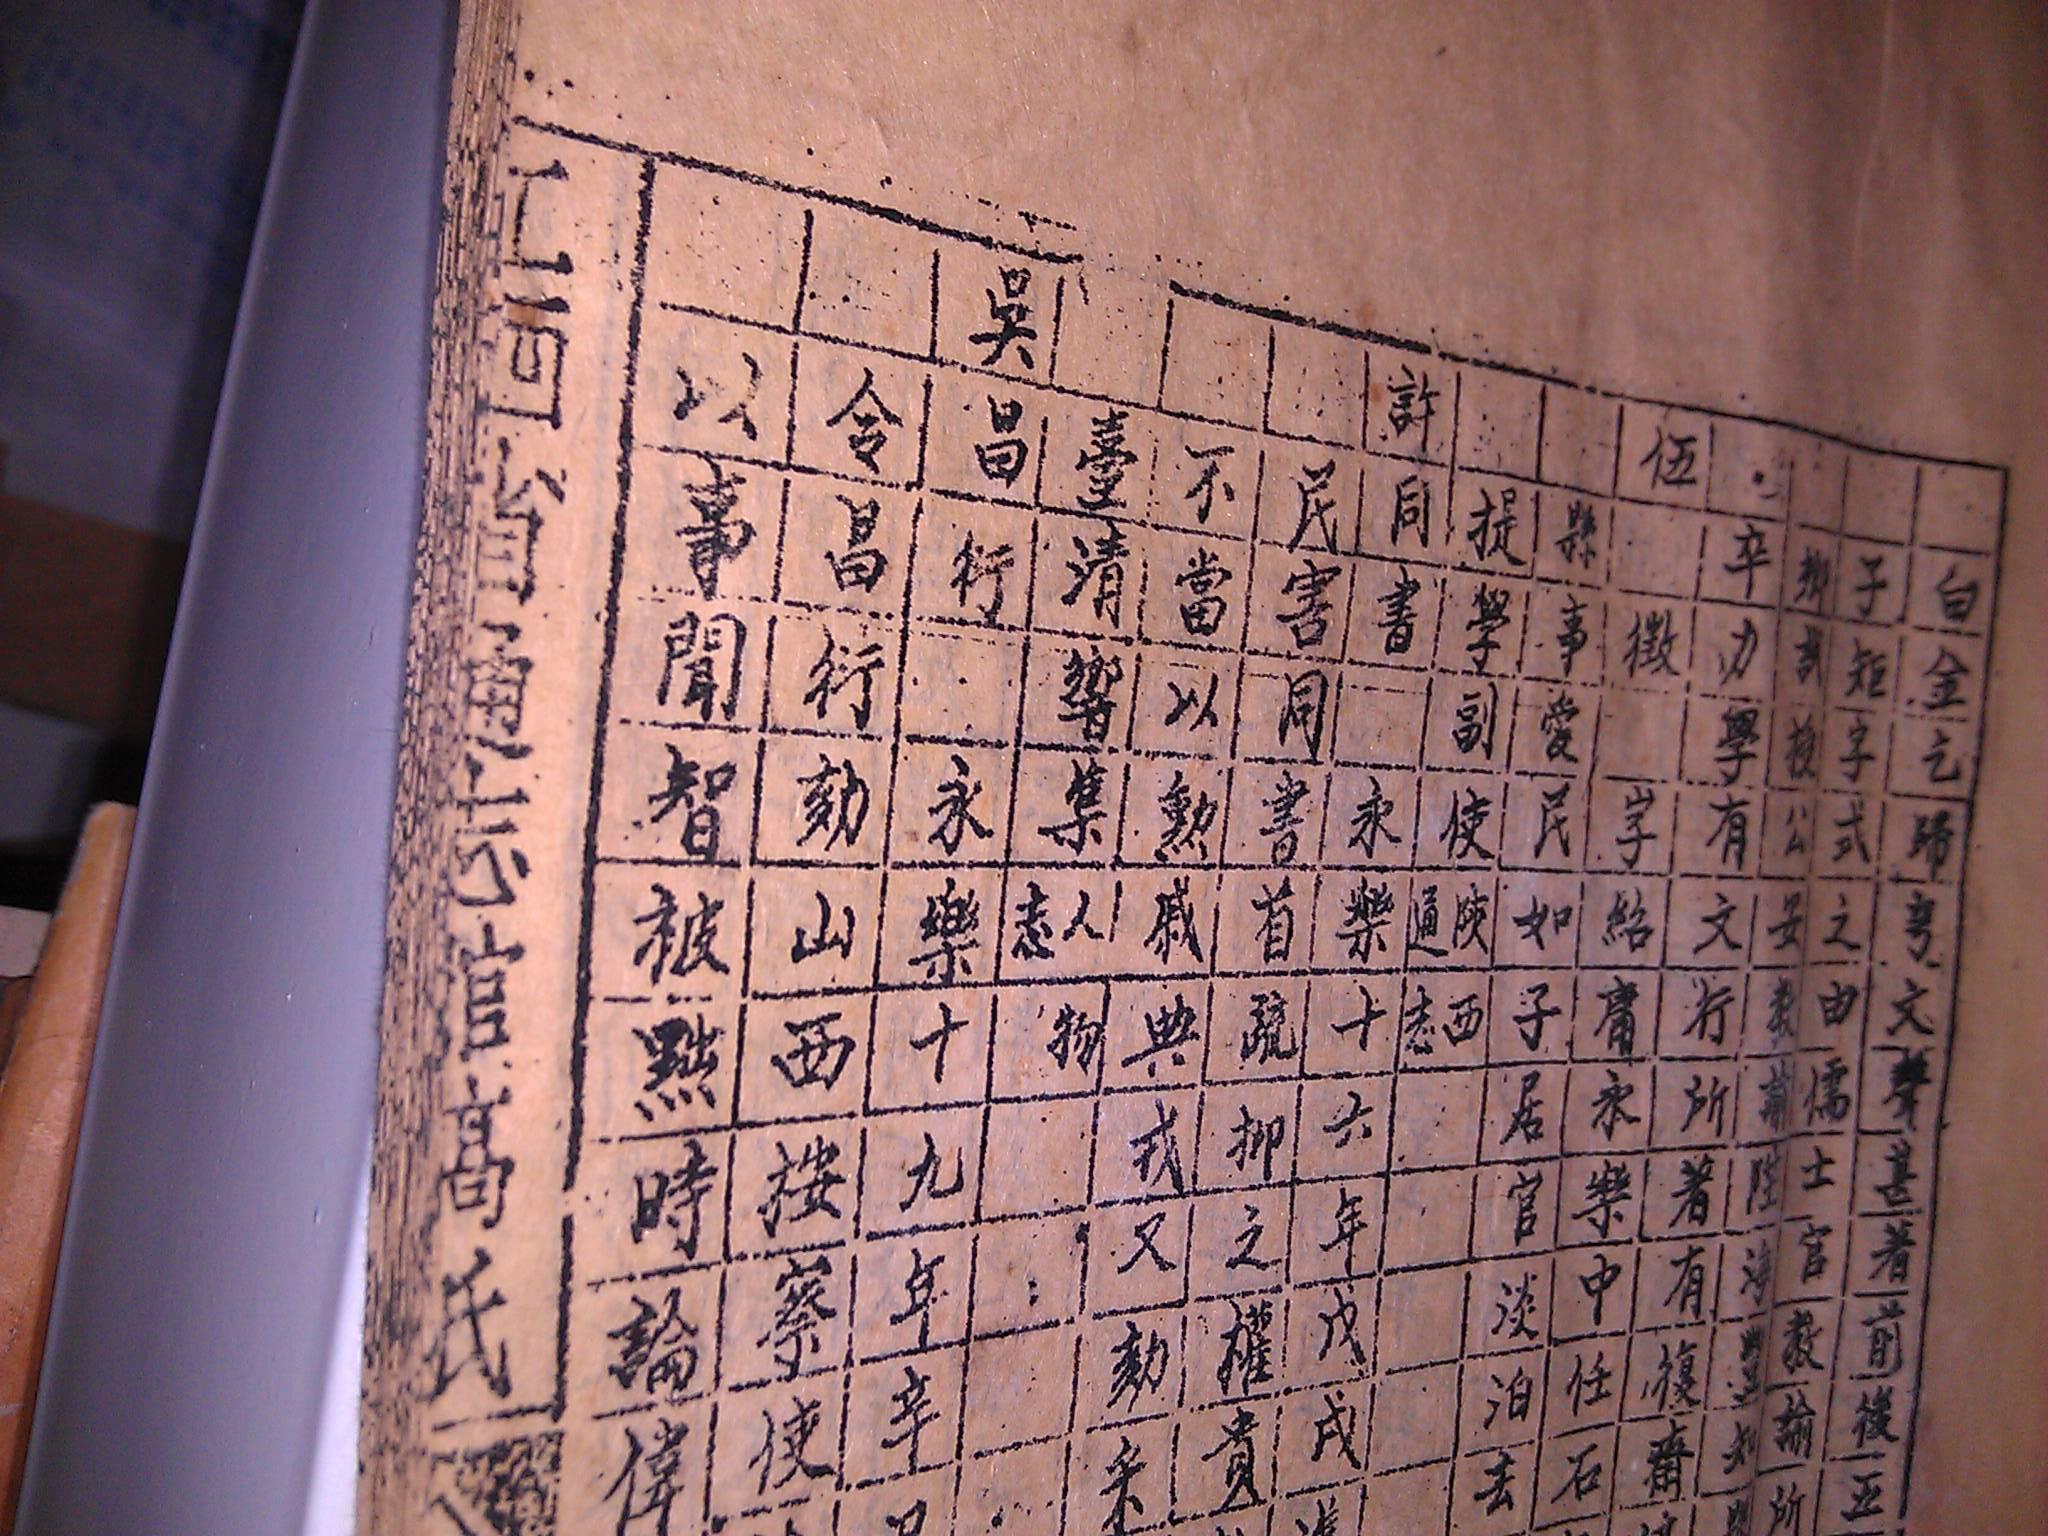 白金乞歸亨文聲甚著前後
子矩字式之由儒士官教諭所
鄉試授公安教諭陞海豐知
卒力學有文行所著有復齋
伍徵 字紹庸永樂中任石
縣事愛民如子居官淡泊去
提學副使陝西通志
許同書 永樂十六年戊戌
民害同書首疏抑之權貴
不當以勲戚典戎又劾
臺清響集人物志
吳昌衍 永樂十九年辛
令昌衍劾山西按察使
以事聞智被黜時論偉
志官高氏